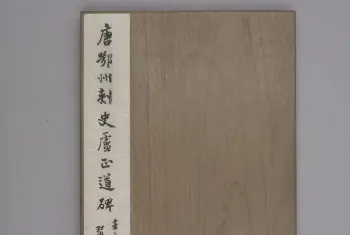 唐鄂州刺史盧正道碑